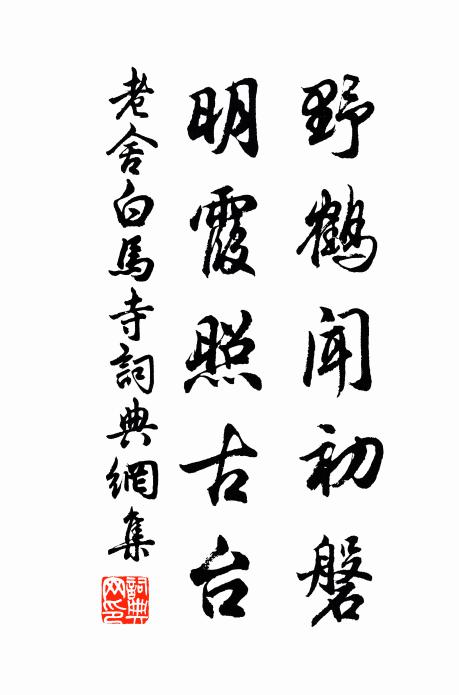 野鶴闻初磐
明霞照古台
老舍白馬寺詞典網集
詞典网印